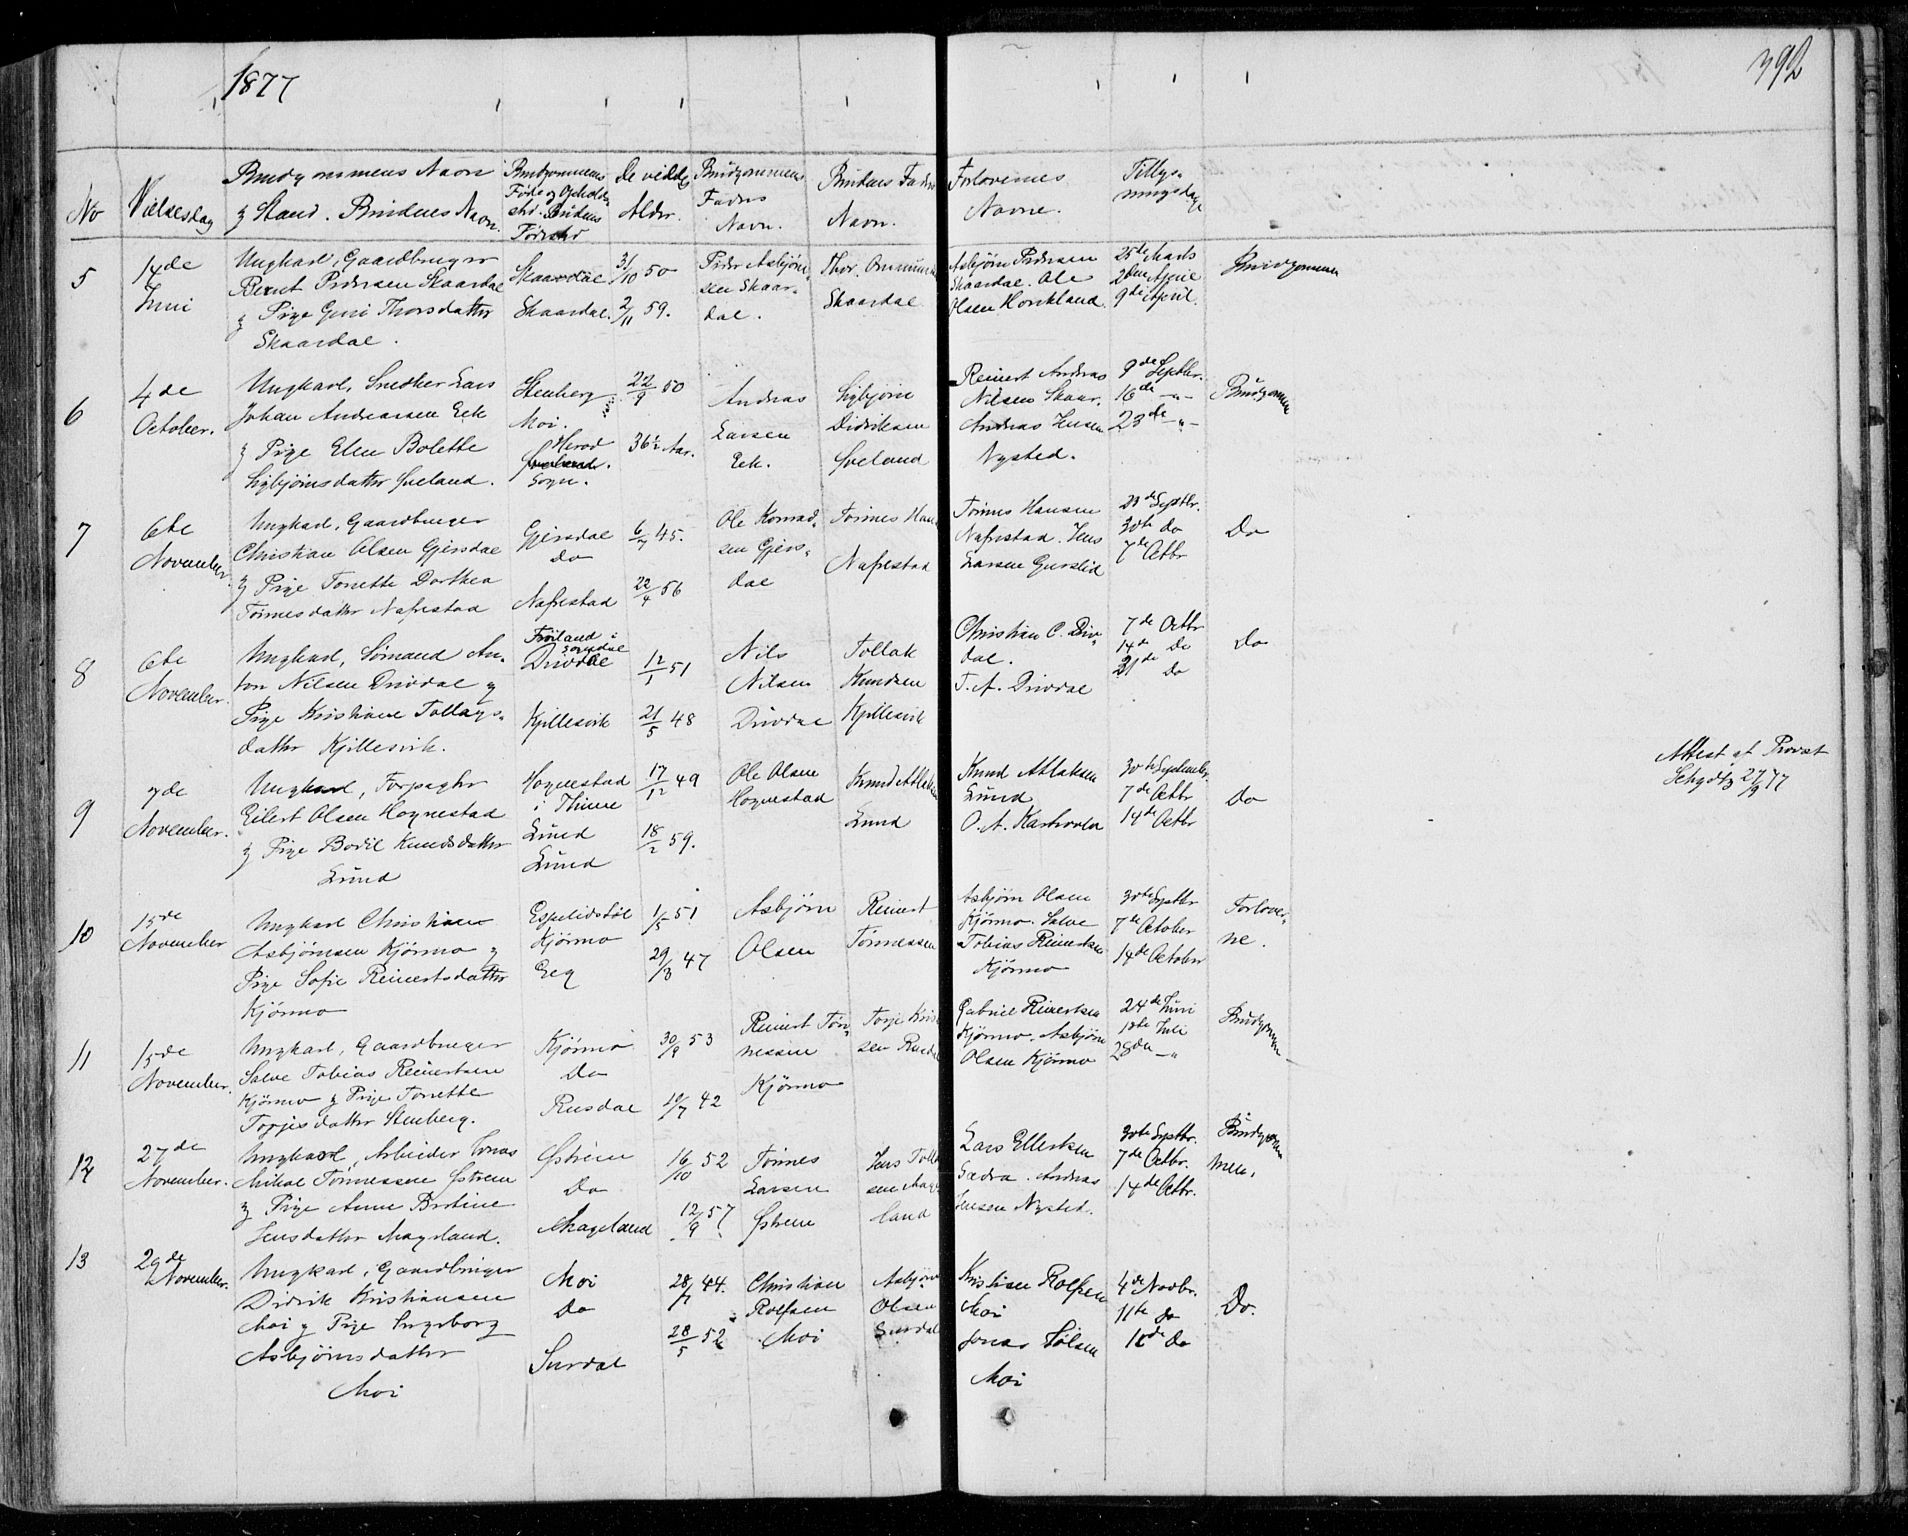 1877
392
No
Vielsesdag
Brudgommens Navn
og Stand. Brudens Navn.
Brudgommens
Føde og Opholds
sted. Brudens
Fødested
De viedes
Alder.
Brudgommens
Faders
Navn.
Brudens Faders
Navn.
Forlovernes
Navne.
Tillys-
ningsdage
5
14de
Juni
Ungkarl, Gaardbruger
Bernt Pedersen Skaardal
og Pige Guri Thorsdatter
Skaardal.
Skaardal
Skaardal.
31/10 50
2/11 59.
Peder Asbjørn-
sen Skaar-
dal.
Thor Ommunds
Skaardal
Asbjørn Pedersen
Skaardal. Ole
Olsen Hovkland
25de Marts
2den April
9de April.
Brudgommen
6
4de
October.
Ungkarl, Snedker Lars
Johan Andreassen Eek
og Pige Elen Bolette
Sigbjørnsdatter Sveland.
Stenberg
Moi.
Herod
Sogn.
22/9 50
36½ Aar.
Andreas
Larsen
Eek.
Sigbjørn
Didriksen
Sveland
Reinert Andreas
Nilsen Skaar.
Andreas Jensen
Nysted.
9de Septbr.
16de -"-
23de -"-
Brudgommen
7
6te
November.
Ungkarl, Gaardbruger
Christian Olsen Gjersdal
og Pige Tonette Dorthea
Tønnesdatter Nafrestad
Gjersdal
Do
Nafrestad
6/7 45.
22/4 56
Ole Konrad-
sen Gjers-
dal
Tønnes Han
Nafrestad
Tønnes Hansen
Nafrestad. Jens
Larsen Gurslid
23de Septbr.
30te Do
7de Octbr
Do
8
6te
November.
Ungkarl, Sømand An-
ton Nilsen Drivdal og
Pige Kristiane Tollags-
datter Kjillesvik.
Frøiland i
Sogndal
Drivdal
Kjillesvik
12/1 51
21/5 48
Nils
Nilsen
Drivdal
Tollak
Knudsen
Kjillesvik
Christian C. Driv-
dal.
T. A. Drivdal
7de Octbr
14de Do
21de Do
Do
9
7de
November.
Ungkarl, Forpagter
Eilert Olsen Hognestad
og Pige Bodil Knudsdatter
Lund
Hognestad
i Thime
Lund
Lund
17/12 49
18/2 59.
Ole Olsen
Hognestad
Knud Atlaksen
Lund
Knud Atlaksen
Lund
O. A. Kashovde
30te September.
7de Octbr
14de Octbr
Do
Attest af Provst
27/9 77
10
15de
November
Ungkarl Christian
Asbjørnsen Kjørmo og
Pige Sofie Reinertsdatter
Kjørmo
Espelidstøl
Kjørmo
Eeg
1/5 51
29/3 47
Asbjørn
Olsen
Reinert
Tønnessen
Asbjørn Olsen
Kjørmo. Salve
Tobias Reinertsen
Kjørmo
30te Septbr
7de October
14de October
Forlover-
ne.
11
15de
November.
Ungkarl, Gaardbruger
Salve Tobias Reinertsen
Kjørmo og Pige Tonette
Torjesdatter Stenberg.
Kjørmo
Do
Rusdal
30/9 53
10/7 42
Reinert Tøn-
nessen
Kjørmo
Torje Kris
sen Rusdal
Gabriel Reinertsen
Kjørmo. Asbjørn
Olsen Kjørmo
24de Juni
28de -"
Brudgommen
12
27de
November.
Ungkarl, Arbeider Jonas
Mikal Tønnessen Østrem
og Pige Anne Bertine
Jensdatter Mageland.
Østrem
Do
Mageland
16/10 52
12/9 57
Tønnes
Larsen
Østrem
Jens Toll
sen Mage
land
Lars Ellertsen
Gadra. Andreas
Jensen Nysted.
30te Septbr.
7de Octbr.
14de Octbr.
Brudgom
men.
13
29de
November.
Ungkarl, Gaardbruger
Didrik Kristiansen
Moi og Pige Ingeborg
Asbjørnsdatter
Moi
Moi
Do
Surdal
28/7 44.
28/5 52
Christian
Rolfsen
Moi
Asbjørn
Olsen
Surdal
Kristian Rolfsen
Moi
Jonas Tølsen
Moi
4de Novbr.
11te Do
Do.